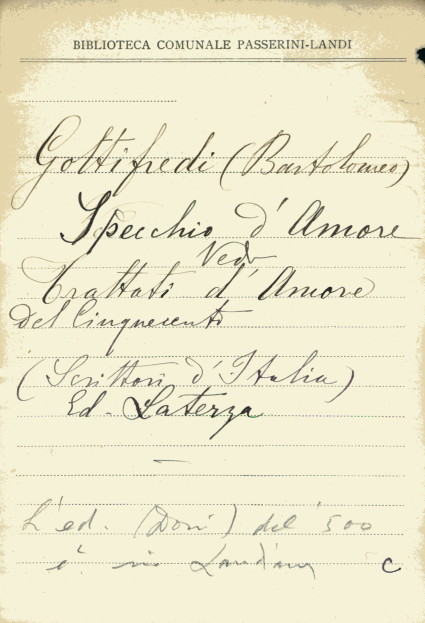 BIBLIOTECA COMUNALE PASSERINI-LANDI
Gottifredi (Bartolomeo)
Specchio d'Amore
Vedi
Trattati d'Amore
Del Cinquecento
(Scrittori d'Italia)
Ed. Laterza
L'ed. (Doni) del '500
è in Landiana
C